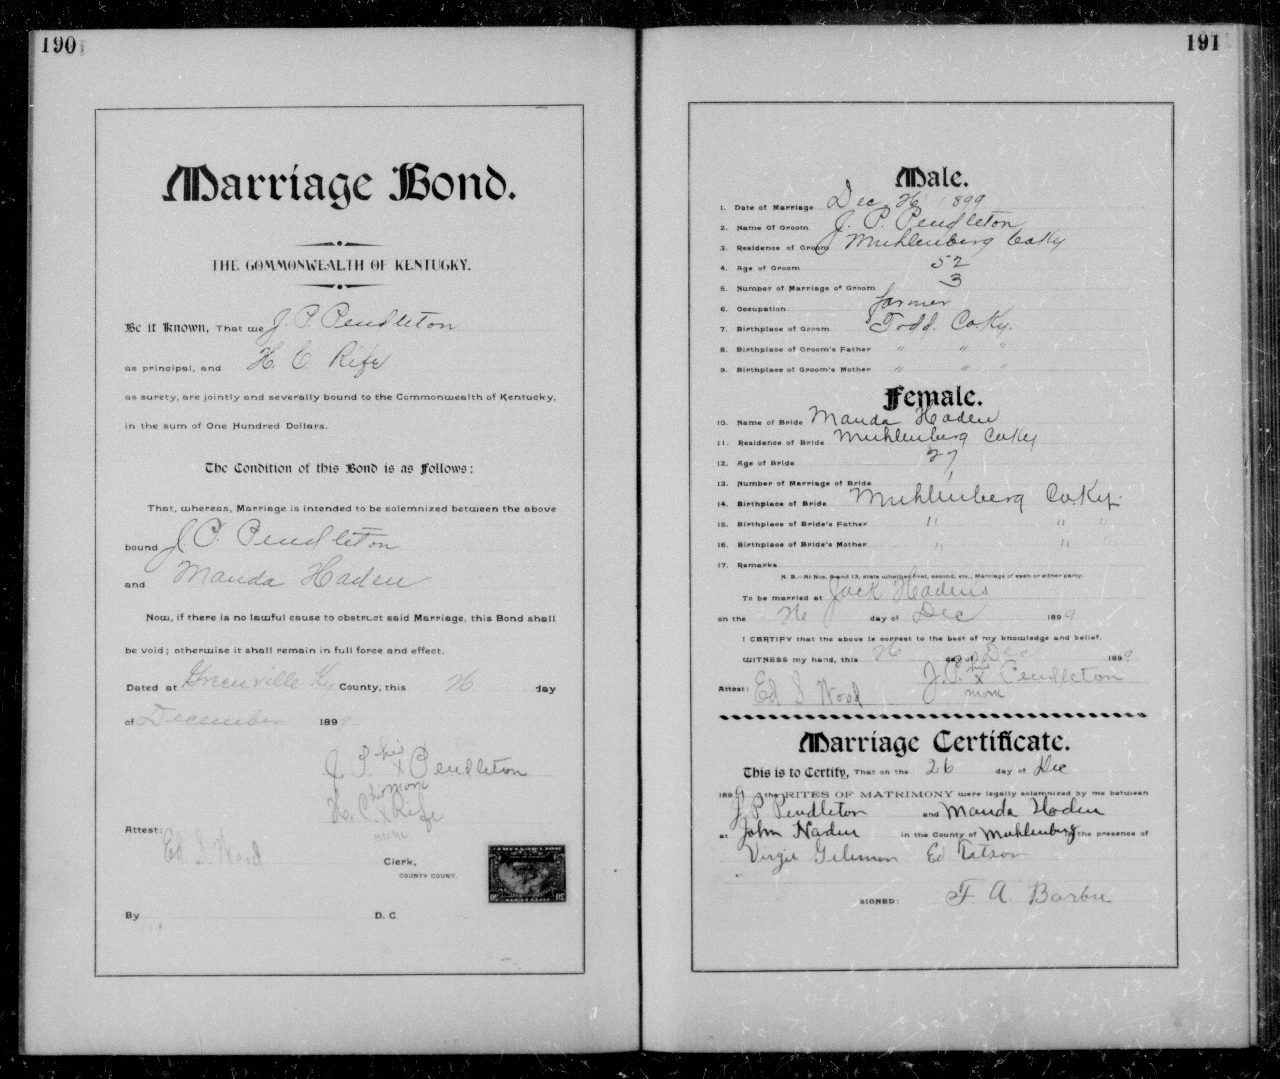 190
Marriage Bond.
THE COMMONWEALTH OF KENTUCKY.
Be it Known, That we J. P. Pendleton
as principal, and H. C. Rife
as surety, are jointly and severally bound to the Commonwealth of Kentucky,
in the sum of One Hundred Dollars.
The Condition of this Bond is as Follows:
That, whereas, Marriage is intended to be solemnized between the above
bound J. P. Pendleton
and Manda Haden
Now, if there is no lawful cause to obstruct said Marriage, this Bond shall
be void; otherwise it shall remain in full force and effect.
Dated at Greenville Ky County, this 26 day
of December 189
J. P. his x Pendleton
mark
H. C. his x Rife
mark
Attest:
Ed S. Wood
Clerk,
COUNTY COURT.
By D. C
191
Male.
1. Date of Marriage Dec 26 1899
2. Name Of Groom J. P. Pendleton
3. Residence of Groom Muhlenberg Co Ky
4. Age of Groom 52
5. Number of Marriage of Groom 3
6. Occupation farmer
7. Birthplace of Groom Todd. Co Ky.
8. Birthplace of Groom's Father " " "
9. Birthplace of Groom's Mother " " "
Female.
10. Name of Bride Manda Haden
11. Residence of Bride Muhlenberg Co Ky
12. Age of Bride 27
13. Number of Marriage of Bride 1
14. Birthplace of Bride Muhlenberg Co Ky.
15. Birthplace of Bride's Father " " "
16. Birthplace of Bride's Mother " "
17. Remarks
N. B.—At Nos. 5 and 13, state whether first, second, etc., Marriage of each or either party.
To be married at Jack Hadens
on the 26 day of Dec 1899
I CERTIFY that the above is correct to the best of my knowledge and belief.
WITNESS my hand, this 26 day of Dec 1899
Attest: Ed S Wood J. P. his x Pendleton
mark
Marriage Certificate.
This is to Certify, That on the 26 day of Dec
1899 the RITES OF MATRIMONY were legally solemnized by me between
J P Pendleton and Manda Haden
at John Haden in the County of Muhlenberg the presence of
Virgil Ed
SIGNED: F. A. Barbee